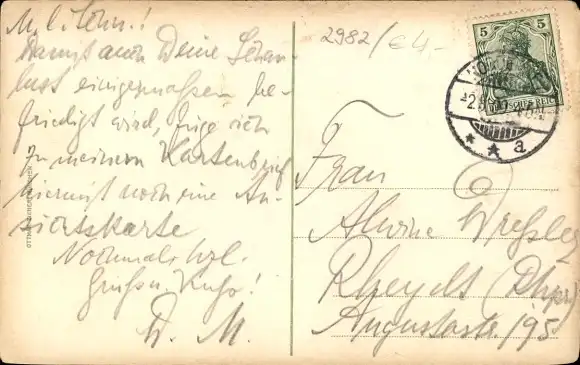 M. l. Sohn!
Damit auch Deine Schau-
lust einigermaßen be-
friedigt wird, füge ich
zu meinem Kartenbrief
hiermit noch eine An-
sichtskarte
Nochmals hzl.
Gruß u. Kuß!
D. M.
2982/€4.-
5 5
DEUTSCHES REICH
* * a
Frau
Alwine Dreßler
Rheydt (Rhpr)
Augustastr. 195